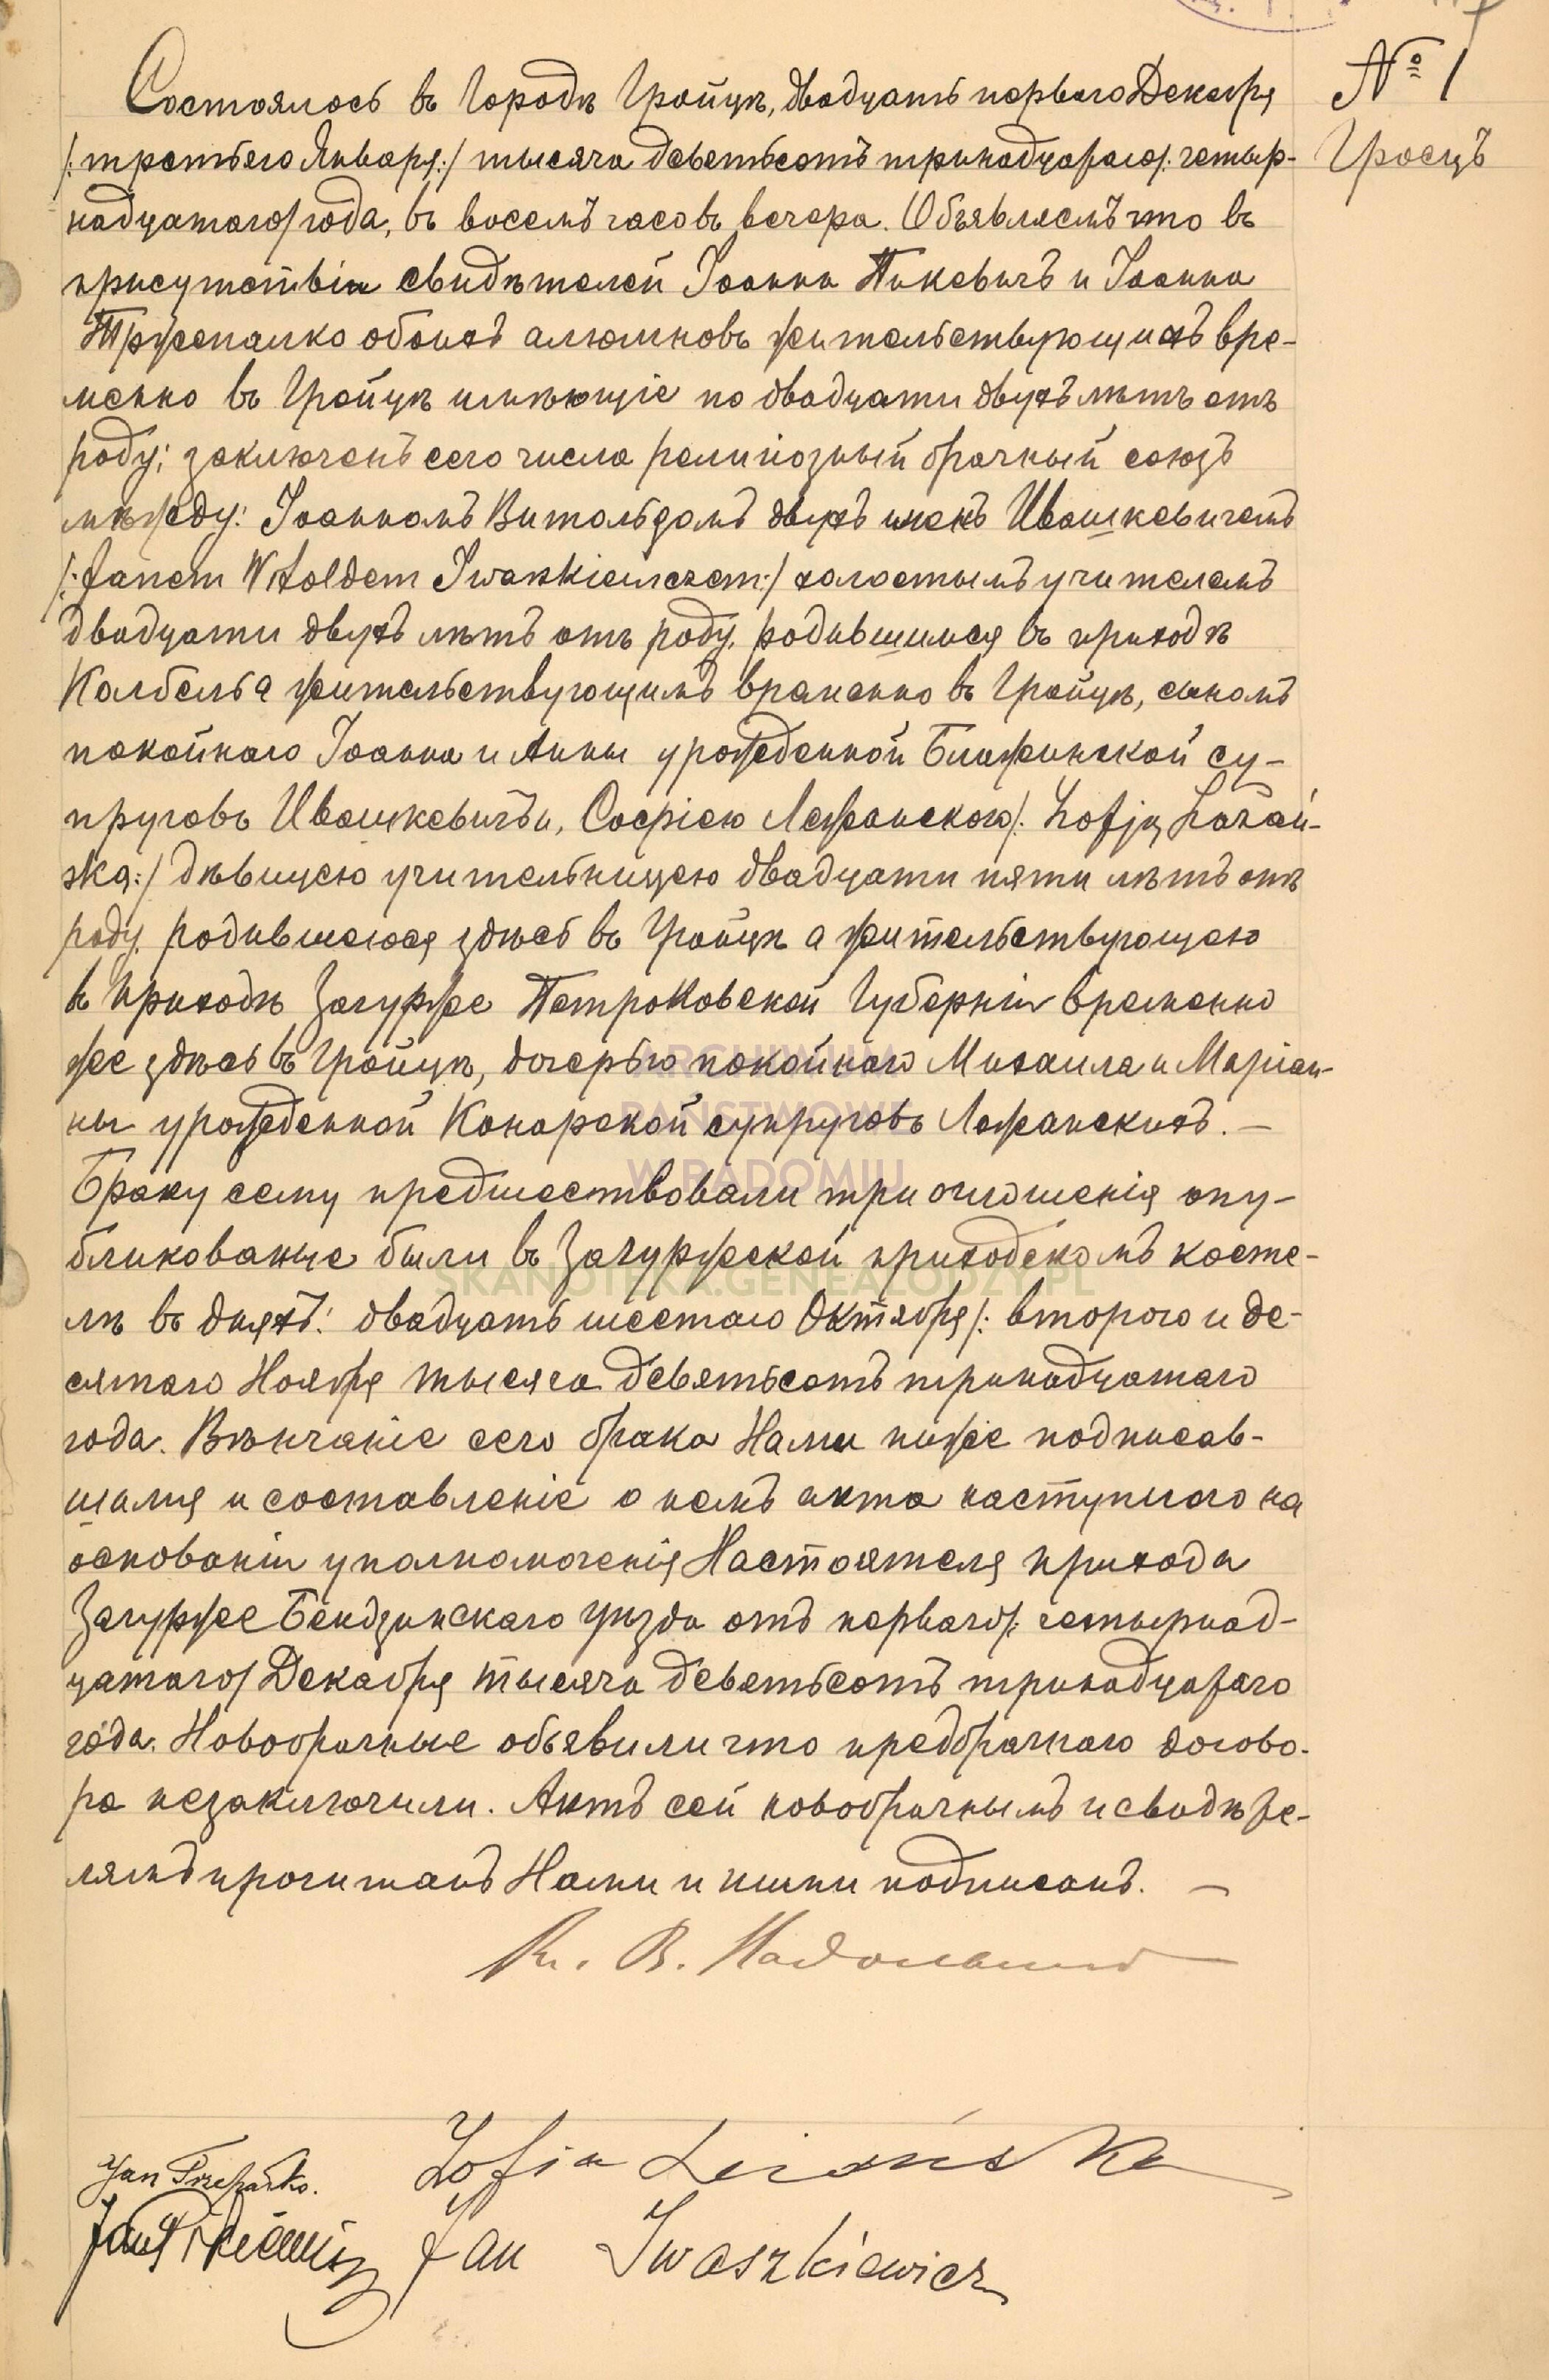 № 1
Гроецъ
Состоялось въ Городѣ Гройцѣ, двадцать перваго Декабря
/:третьяго Января:/ тысяча девятьсотъ тринадцатаго /:четыр-
надцатаго/ года, въ восемь часовъ вечера. Объявляемъ что въ
присутствіи свидѣтелей Іоанна Пикевичъ и Іоанна
Тржепалко обоихъ алюмновъ жительствующихъ вре-
менно въ Гройцѣ имѣющіе по двадцати двухъ лѣтъ отъ
роду; заключенъ сего числа религіозный брачный союзъ
между: Іоанномъ Витольдомъ двухъ именъ Ивашкевичемъ
/:Janem Witoldem Iwaszkiewiczem:/ холостымъ учителемъ
двадцати двухъ лѣтъ отъ роду, родившимся въ приходѣ
Колбель а жительствующимъ временно въ Гройцѣ, сыномъ
покойнаго Іоанна и Анны урожденной Ближинской су-
пруговъ Ивашкевичъи, Софіею Лежанскою /:Zofją Leżań-
ską:/ дѣвицею учительницею двадцати пяти лѣтъ отъ
роду, родившеюся здѣсь въ Гройцѣ а жительствующею
въ приходѣ Загуржже Петроковской Губерніи временно
же здѣсь въ Гройцѣ, дочерью покойнаго Михаила и Маріан-
ны урожденной Конарской супруговъ Лежанскихъ. —
Браку сему предшествовали три оглошенія опу-
бликованные были въ Загуржской приходскомъ косте-
лѣ въ дняхъ: двадцать шестаго Октября /: второго и де-
сятаго Ноября тысяча девятьсотъ тринадцатаго
года. Вѣнчаніе сего брака Нами ниже подписав-
шимся и составленіе о немъ акта наступило на
основаніи уполномоченія Настоятеля прихода
Загуржже Бендзинскаго уѣзда отъ перваго /:четырнад-
цатаго/ Декабря тысяча девятьсотъ тринадцатаго
года. Новобрачные объявили что предбрачнаго догово-
ра незаключили. Актъ сей новобрачнымъ и свидѣте-
лямъ прочитанъ Нами и ими подписанъ. —
Jan Trzepałko.
Zofia Leżańska
Jan Pikiewicz
Jan Iwaszkiewicz
ARCHIWUM
PAŃSTWOWE
W RADOMIU
SKANOTEKA.GENEALODZY.PL